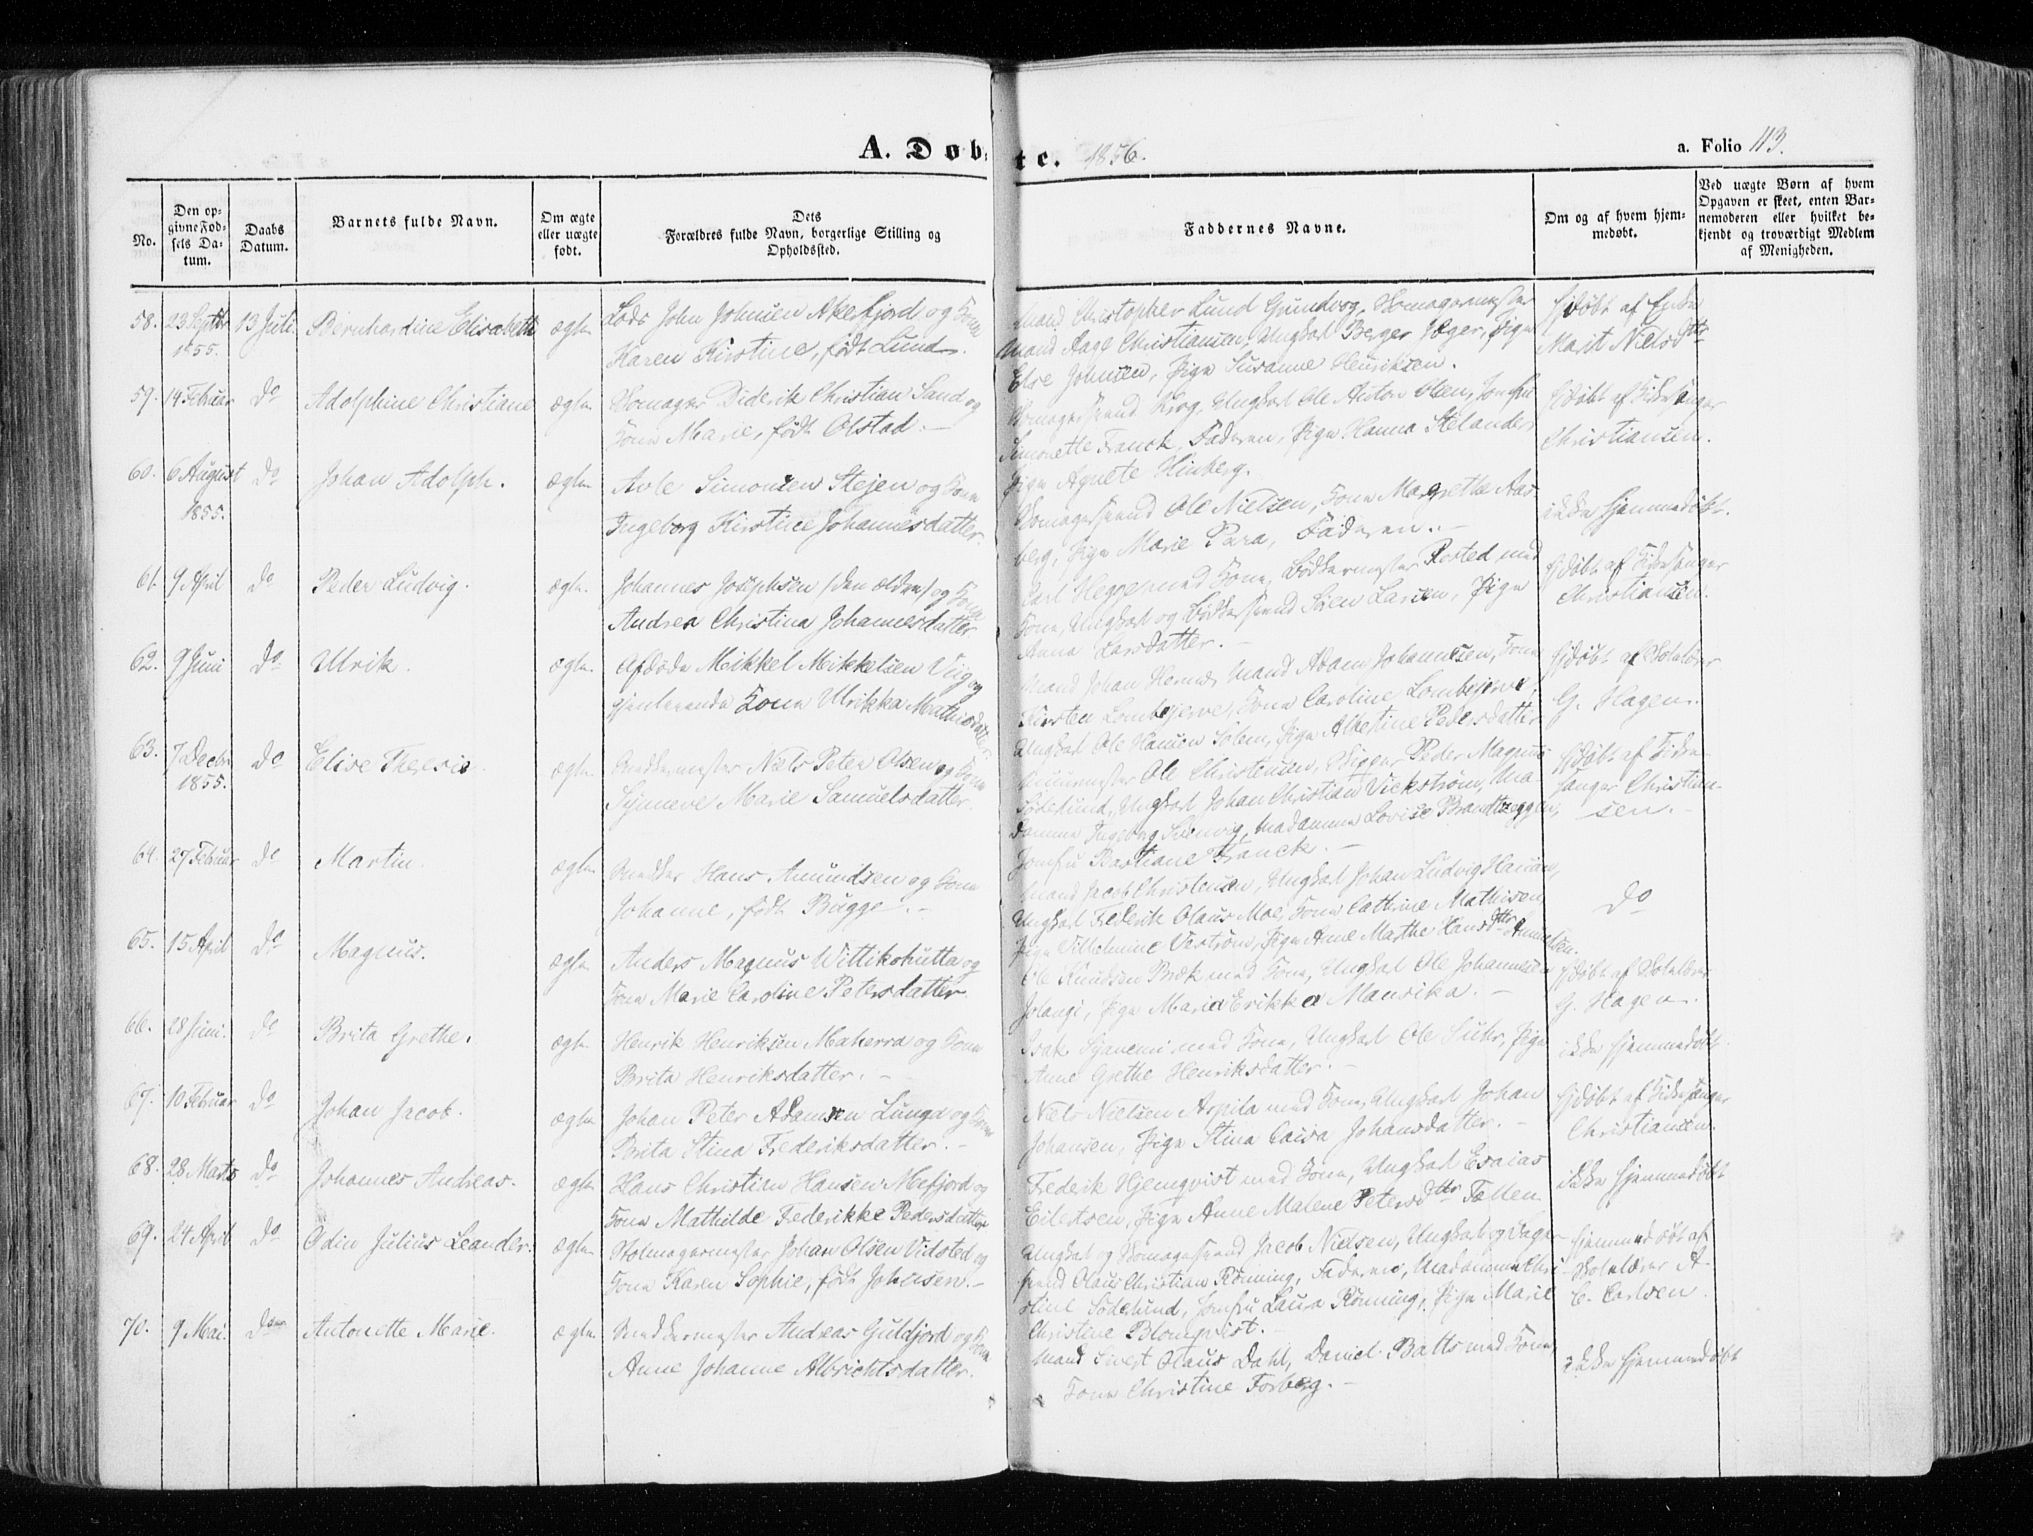 A. Døbte. 1856.
a. Folio 113.
No.
Den op-
givne Fød-
sels Da-
tum.
Daabs
Datum.
Barnets fulde Navn.
Om ægte
eller uægte
født.
Dets
Forældres fulde Navn, borgerlige Stilling og
Opholdssted.
Faddernes Navne.
Om og af hvem hjem-
medøbt.
Ved uægte Børn af hvem
Opgaven er skeet, enten Bar-
nemoderen eller hvilket be-
kjendt og troværdigt Medlem
af Menigheden.
58. 23 Septbr 13 Juli Bernhardine Elisabeth ægte Lods John Johnsen Akefjord og Kone
1855.
Karen Kirstine, født Lund.
Mand Christopher Lund Grundvog, Skomagermester
Mand Aage Christiansen, Ungkarl Berger Jæger, Pige
Else Johnsen, Pige Susanne Henriksen.
hjdøbt af Enke
Marit Nielsdtr
59. 14 Februar do Adolphine Christiane ægte Skomager Diderik Christian Sand og
Kone Marie, født Olstad.
Skomagersvend Krog, Ungkarl Ole Anton Olsen, Jomfru
Simonette Franck, Faderen, Pige Hanna Stelander
Pige Agnete Hinberg.
hjdøbt af Kirkesanger
Christiansen.
60. 6 August do Johan Adolph. ægte Avle Simonsen Stejen og Kone
1855.
Ingeborg Kirstine Johannesdatter.
Skomagersvend Ole Nielsen, Kone Magrethe Aas-
berg, Pige Marie Para, Faderen.
ikke hjemmedøbt.
61. 9 April do Peder Ludvig. ægte Johannes Josephsen (den ældre) og Kone
Andrea Christina Johannesdatter
Carl Heggen med Kone, Bødkermester Rosted med
Kone, Ungkarl og Bødkersvend Søren Larsen, Pige
Anna Larsdatter.
hjdøbt af Kirkesanger
Christiansen.
62. 9 Juni do Ulrik. ægte Afdøde Mikkel Mikkelsen Viig og
gjenlevende Kone Ulrikka Mathisdatter
Mand Johan Hernes, Mand Adam Johannesen, Kone
Kirsten Lombojerve, Kone Caroline Lombojerve,
Ungkarl Ole Hansen Solem, Pige Albertine Pedersdatter
hjdøbt af Skolelærer
G. Hagen.
63. 7 Decbr do Elise Therese. ægte Snedkermester Niels Peter Olsen og Kone
1855.
Synneve Marie Samuelsdatter.
Ole Christensen, Skipper Peder Magnus
Södelund, Ungkarl Johan Christian Vickstrøm, Ma-
damme Ingeborg Steenvig, Madamme Lovise Brandtzeggen,
Jomfru Bastiane Franck.
hjdøbt af Kirke-
sanger Christian-
sen.
64. 27 Februar do Martin. ægte Snedker Hans Amundsen og Kone
Johanne, født Bugge.
Mand Jacob Christensen, Ungkarl Johan Ludvig Hansen,
Ungkarl Frederik Olaus Moe, Kone Cathrine Mathisen,
Pige Vilhelmine Vestrøm, Pige Ane Marthe Hansdtr Amundsen.
do
65. 15 April do Magnus. ægte Anders Magnus Wittikohutta og
Kone Marie Caroline Petersdatter.
Ole Knudsen Bræk med Kone, Ungkarl Ole Johannesen
Jolangi, Pige Maria Erikka Mansika.
hjdøbt af Skolelærer
G. Hagen.
66. 28 Juni. do Brita Grethe. ægte Henrik Henriksen Maherra og Kone
Brita Henriksdatter.
Isak Sjanemi med Kone, Ungkarl Ole Suhr, Pige
Anne Grethe Henriksdatter.
ikke hjemmedøbt.
67. 10 Februar do Johan Jacob. ægte Johan Peter Adamsen Lunga og Kone
Brita Stina Frederiksdatter.
Niels Nielsen Aspita med Kone, Ungkarl Johan
Johansen, Pige Stina Caisa Johansdatter.
hjdøbt af Kirkesanger
Christiansen.
68. 28 Marts do Johannes Andreas. ægte Hans Christian Hansen Mefjord og
Kone Mathilde Frederikke Pedersdatter
Frederik Hjemqvist med Kone, Ungkarl Esaias
Eilertsen, Pige Anne Malene Petersdtr Fætten
ikke hjemmedøbt
69. 24 April do Odin Julius Leander. ægte Stolmagermester Johan Olsen Vidsted og
Kone Karen Sophie, født Johnsen.
Ungkarl og Skomagersvend Jacob Nielsen, Ungkarl og Bager-
svend Olaus Christian Rönning, Faderen, Madamme Chri-
stine Södelund, Jomfru Laura Rönning, Pige Marie
Christine Blomqvist.
hjemmedøbt af
Skolelærer A.
C. Carlsen.
70. 9 Mai. do Antonette Marie. ægte Snedkermester Andreas Guldfjord og Kone
Anne Johanne Albrichtsdatter.
Mand Sivert Olaus Dahl, Daniel Batts med Kone,
Kone Christine Forberg.
ikke hjemmedøbt